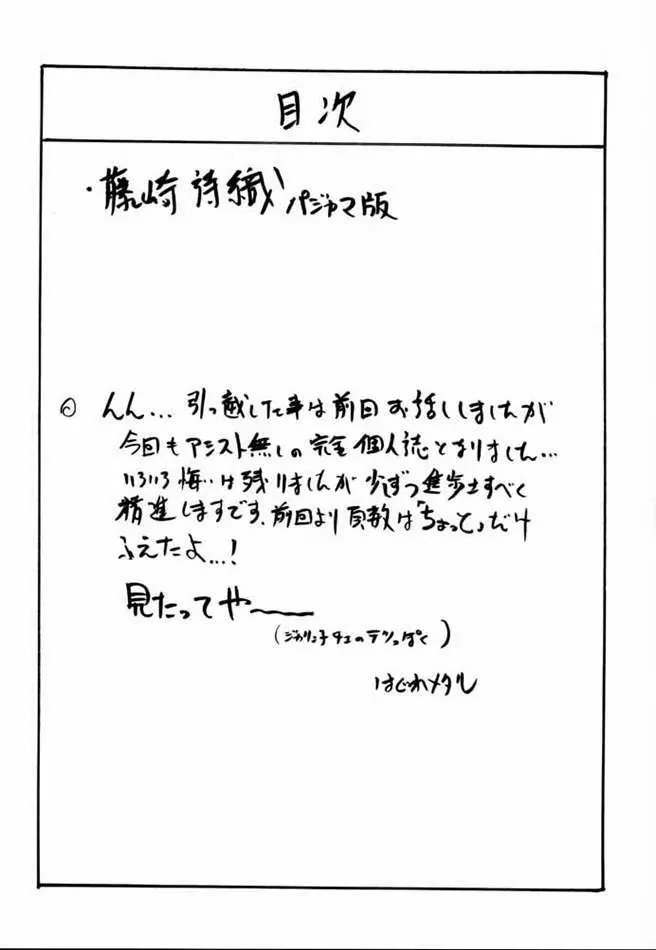 目次
・藤崎詩織 パジャマ版
◎ んん…引っ越しした事は前回お話ししましたが
今回もアシスト無しの完全個人誌となりました…
いろいろ悔いは残りましたが少しずつ進歩すべく
精進しますです、前回より頁数は「ちょっと」だけ
ふえたよ…!
見たってや〜
(じゃりン子チエのテツっぽく)
はぐれメタル